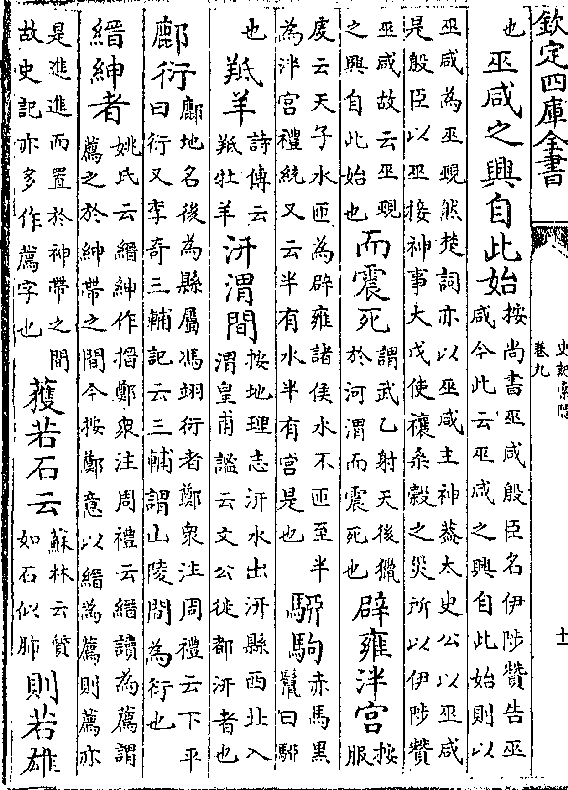 欽定四庫全書
史記索隱
卷九
十一
也
巫咸之興自此始
按尚書巫咸殷臣名伊陟贊告巫
咸今此云巫咸之興自此始則以
巫咸為巫覡然楚詞亦以巫咸主神蓋太史公以巫咸
是殷臣以巫接神事大戊使禳桑穀之災所以伊陟贊
巫咸故云巫覡
之興自此始也
而震死
謂武乙射天後獵
於河渭而震死也
辟雍泮宮
按
服
䖍云天子水匝為辟雍諸侯水不匝至半
為泮宮禮統又云半有水半有宮是也
騂駒
赤馬黒
鬛曰騂
也
羝羊
詩傳云
羝牡羊
汧渭間
按地理志汧水出汧縣西北入
渭皇甫謐云文公徙都汧者也
鄜衍
鄜地名後為縣屬馮翊衍者鄭衆注周禮云下平
曰衍又李奇三輔記云三輔謂山陵間為衍也
縉紳者
姚氏云縉紳作搢鄭衆注周禮云縉讀為薦謂
薦之於紳帶之間今按鄭意以縉為薦則薦亦
是進進而置於神帶之間
故史記亦多作薦字也
獲若石云
蘇林云質
如石似肺
則若雄